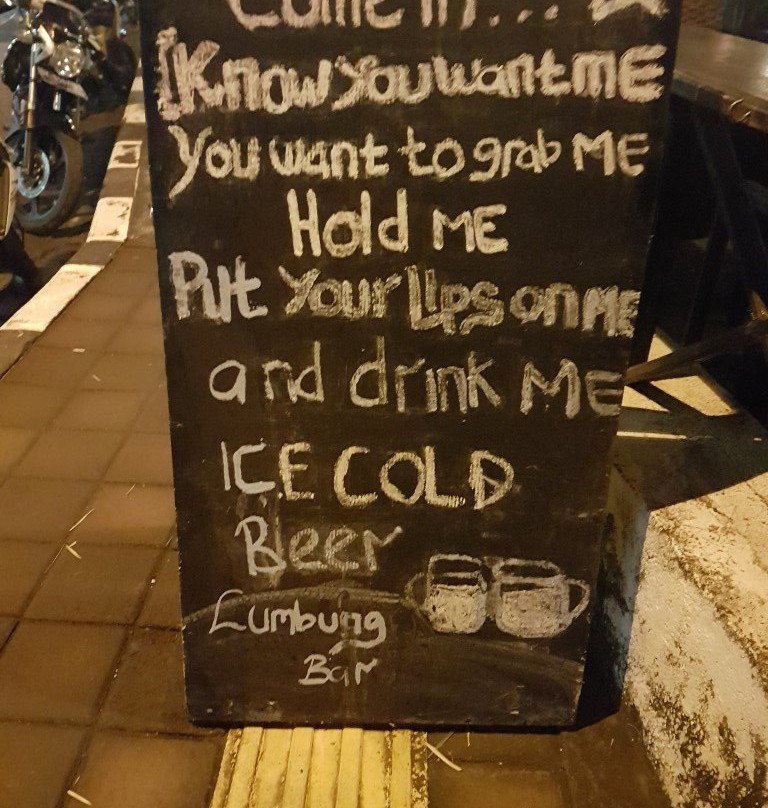 Come in...
I Know You want ME
You want to grab ME
Hold ME
Put Your Lips on ME
and drink ME
ICE COLD
Beer
Lumbung
Bar